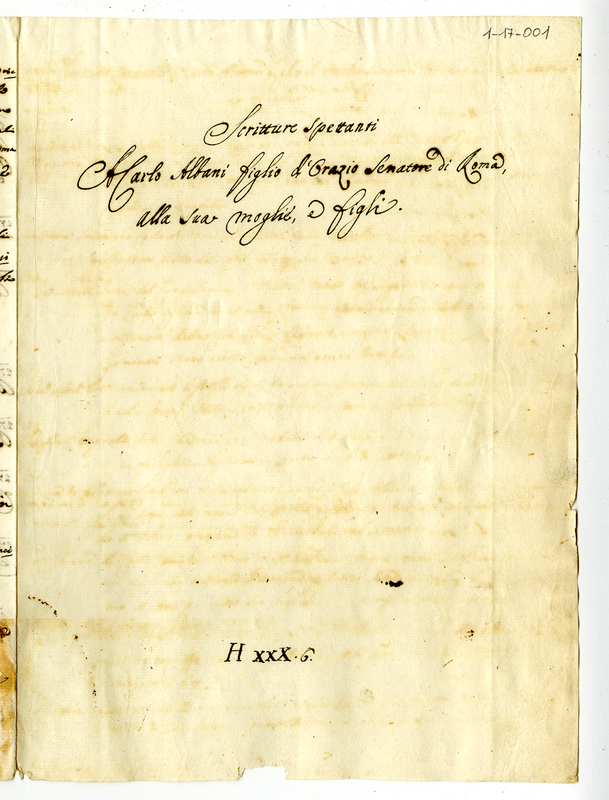 1-17-001
Scritture spettanti
A Carlo Albani figlio d'Orazio Senatore di Roma,
alla sua moglie, e figli.
H XXX.6.